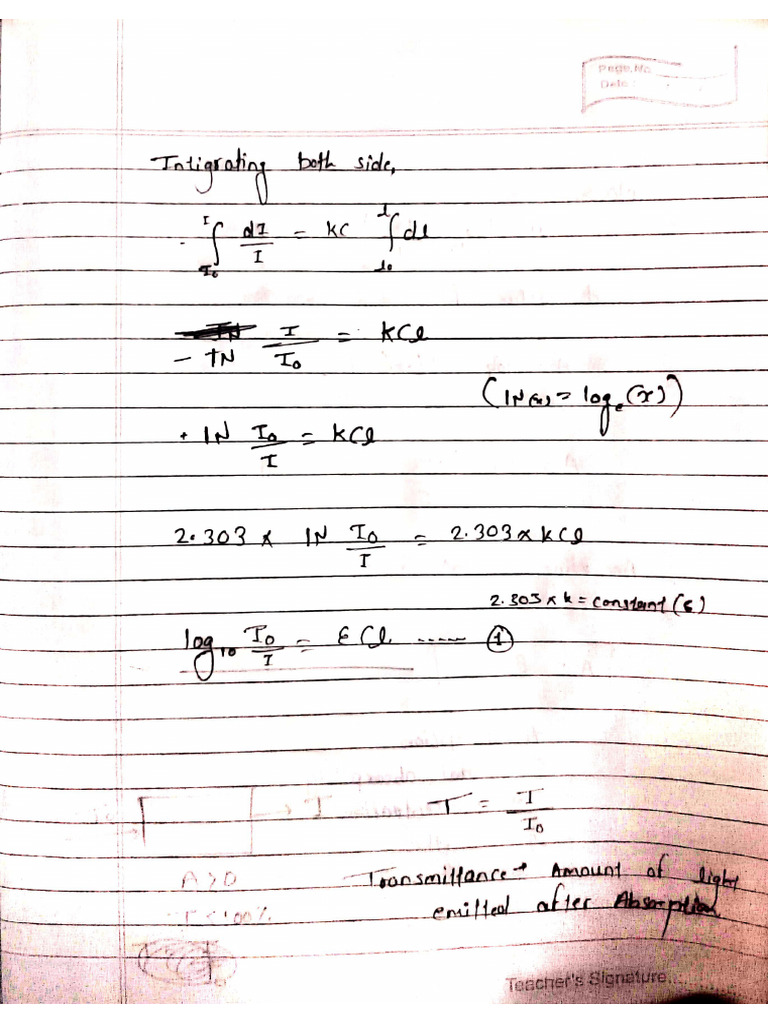 Page No.
Date :
Intigrating both side,
- ∫ I I₀ dI/I = kC ∫ l l₀ dl
- IN I/I₀ = kCl
(IN(x) = logₑ(x))
+ IN I₀/I = kCl
2.303 x IN I₀/I = 2.303 x kCl
2.303 x k = constant (ε)
log₁₀ I₀/I = εCl ------ ①
→ I T = I/I₀
A>0 Transmittance → Amount of light
T<100% emitted after Absorption
Teacher's Signature